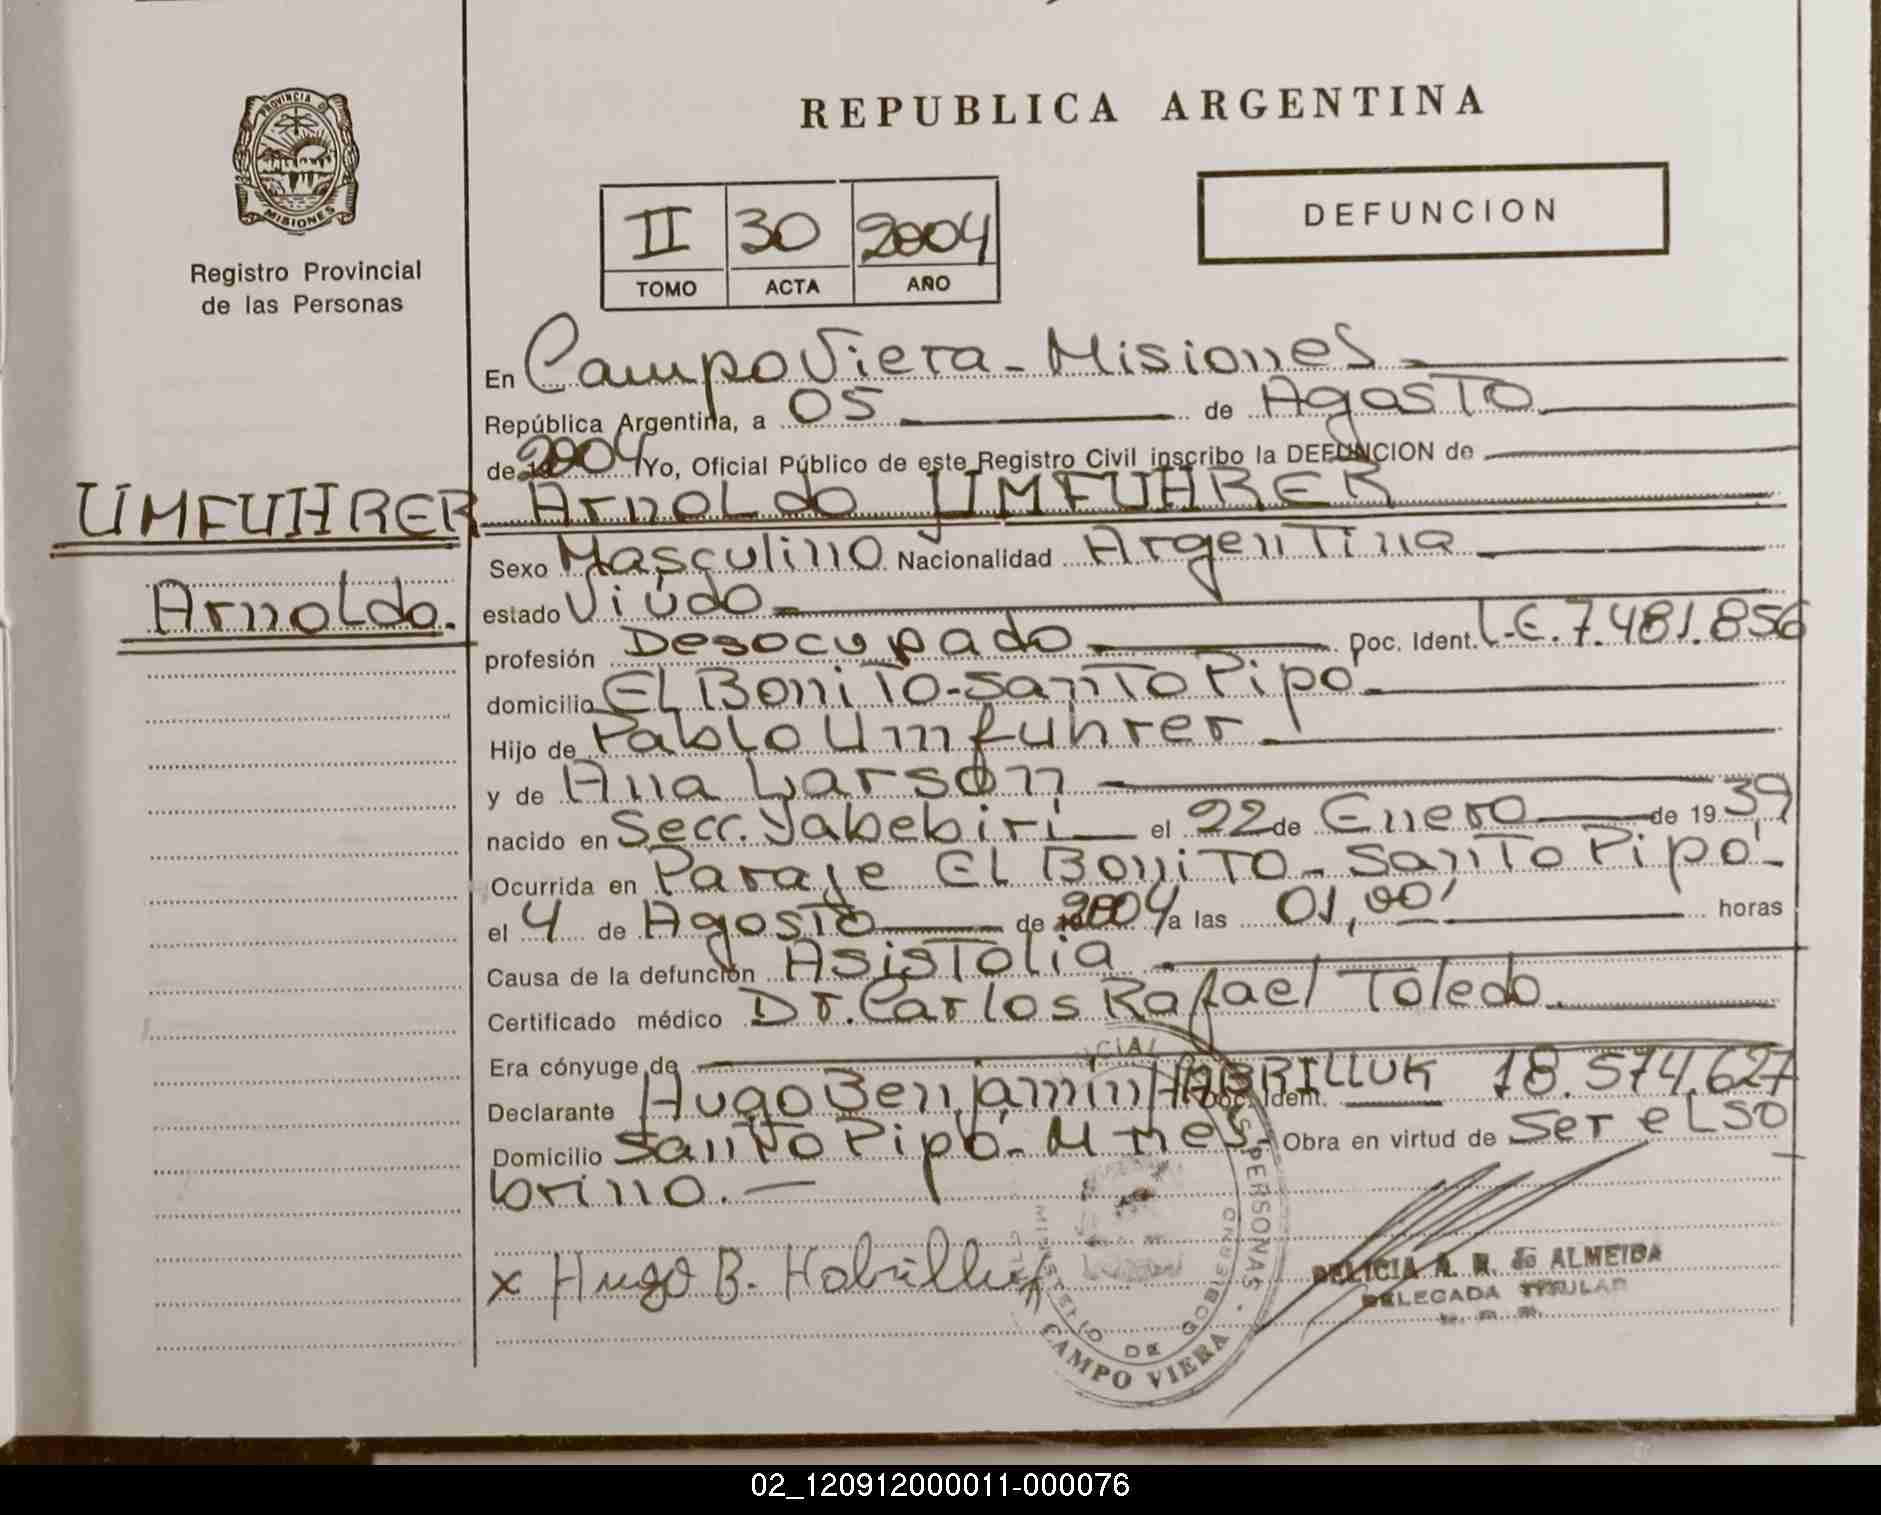 REPUBLICA ARGENTINA
PROVINCIA D
MISIONES
Registro Provincial
de las Personas
II 30 2004
TOMO ACTA AÑO
DEFUNCION
En Campo Viera - Misiones
República Argentina, a 05 de Agosto
de 2004 Yo, Oficial Público de este Registro Civil inscribo la DEFUNCION de
UMFUHRER Arnoldo UMFUHRER
Arnoldo.
Sexo Masculino Nacionalidad Argentina
estado Viudo
profesión Desocupado Doc. Ident. L.E. 7.481.856
domicilio El Bonito - Santo Pipó
Hijo de Pablo Umfuhrer
y de Ana Larson
nacido en Secc. Yabebiri el 22 de Enero de 1939
Ocurrida en Paraje El Bonito - Santo Pipó -
el 4 de Agosto de 2004 a las 01,00' horas
Causa de la defunción Asistolia
Certificado médico Dr. Carlos Rafael Toledo.
Era cónyuge de
Declarante Hugo Benjamin HABRILLUK Doc. Ident. 18.574.627
Domicilio Santo Pipó - Mnes - Obra en virtud de Ser el so
brino. -
x Hugo B. Habrilluk
DELICIA A. R. de ALMEIDA
DELEGADA TITULAR
PERSONAS
MINISTERIO DE GOBIERNO
CAMPO VIERA
02_120912000011-000076